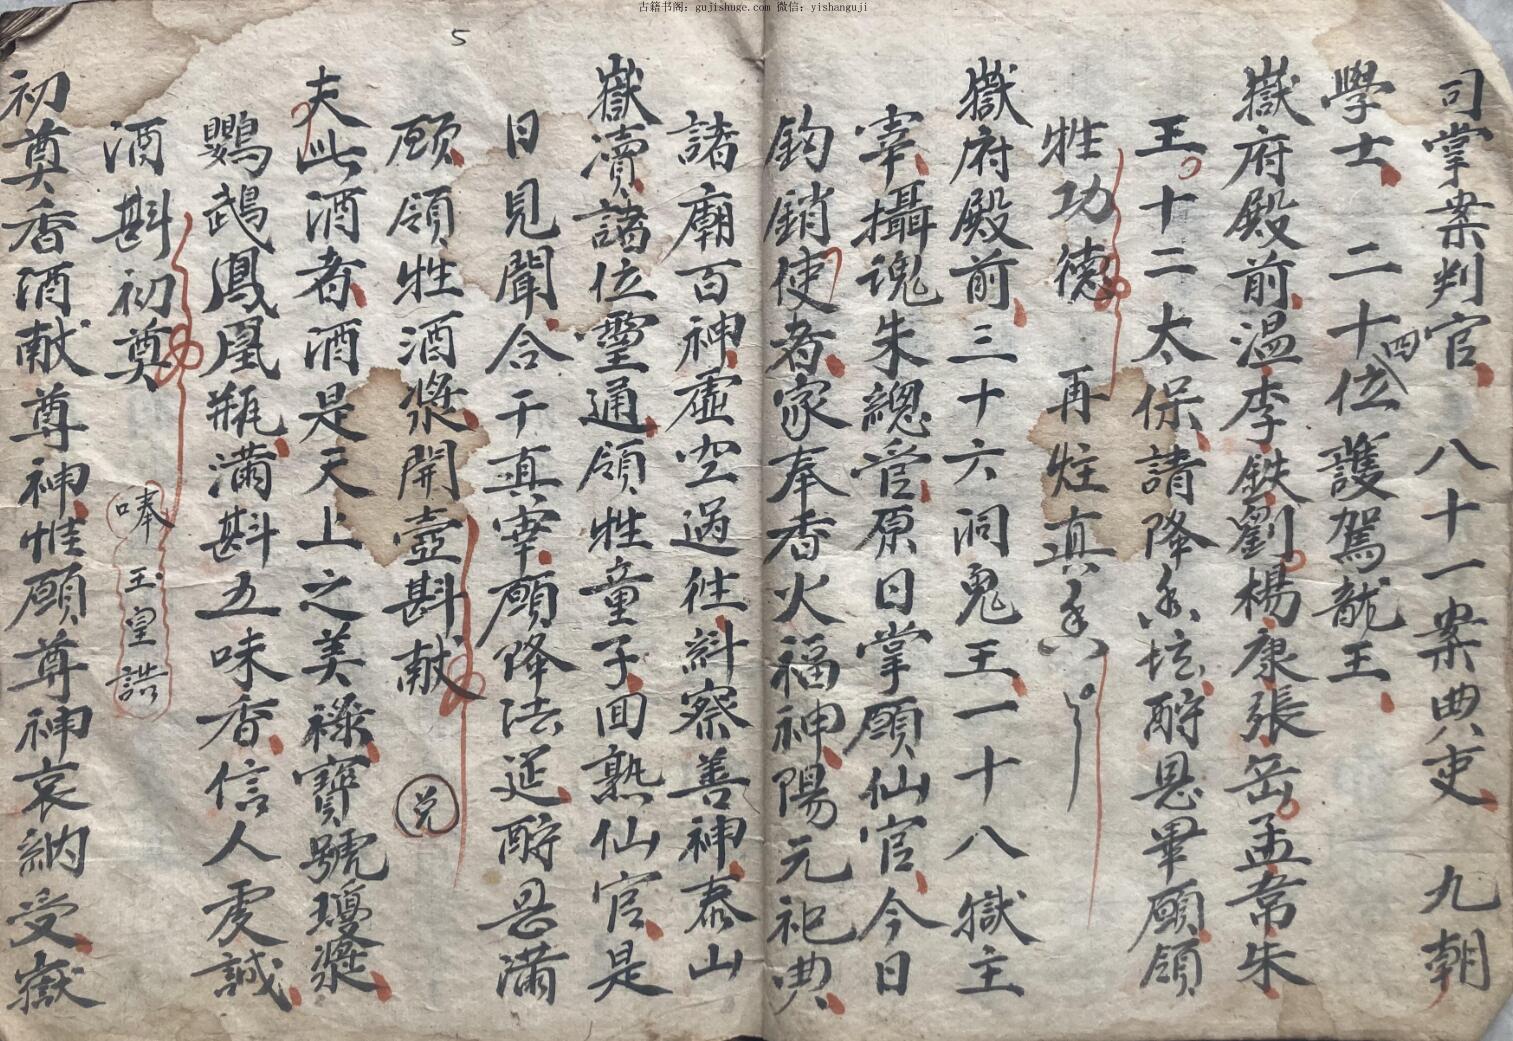 古籍书阁：gujishuge.com 微信：yishanguji
5
司掌案判官 八十一案典吏 九朝
學士 二十四位護駕龍王
嶽府殿前溫李鉄劉楊康張岳孟韋朱
王 十二太保請降香坛酧恩畢願領
牲功德 再炷真香
嶽府殿前三十六洞鬼王一十八獄主
宰攝魂朱總管原日掌願仙官今日
鈎銷使者家奉香火福神陽元祀典
諸廟百神虛空過往糾察善神泰山
嶽瀆諸位靈通領牲童子回熟仙官是
日見聞合干真宰願降法筵酧恩滿
願領牲酒漿開壺斟献 兑
夫此酒者酒是天上之美祿寶號瓊漿
鸚鵡鳳凰瓶滿斟五味香信人虔誠
酒斟初奠 唪玉皇誥
初奠香酒献尊神惟願尊神哀納受嶽